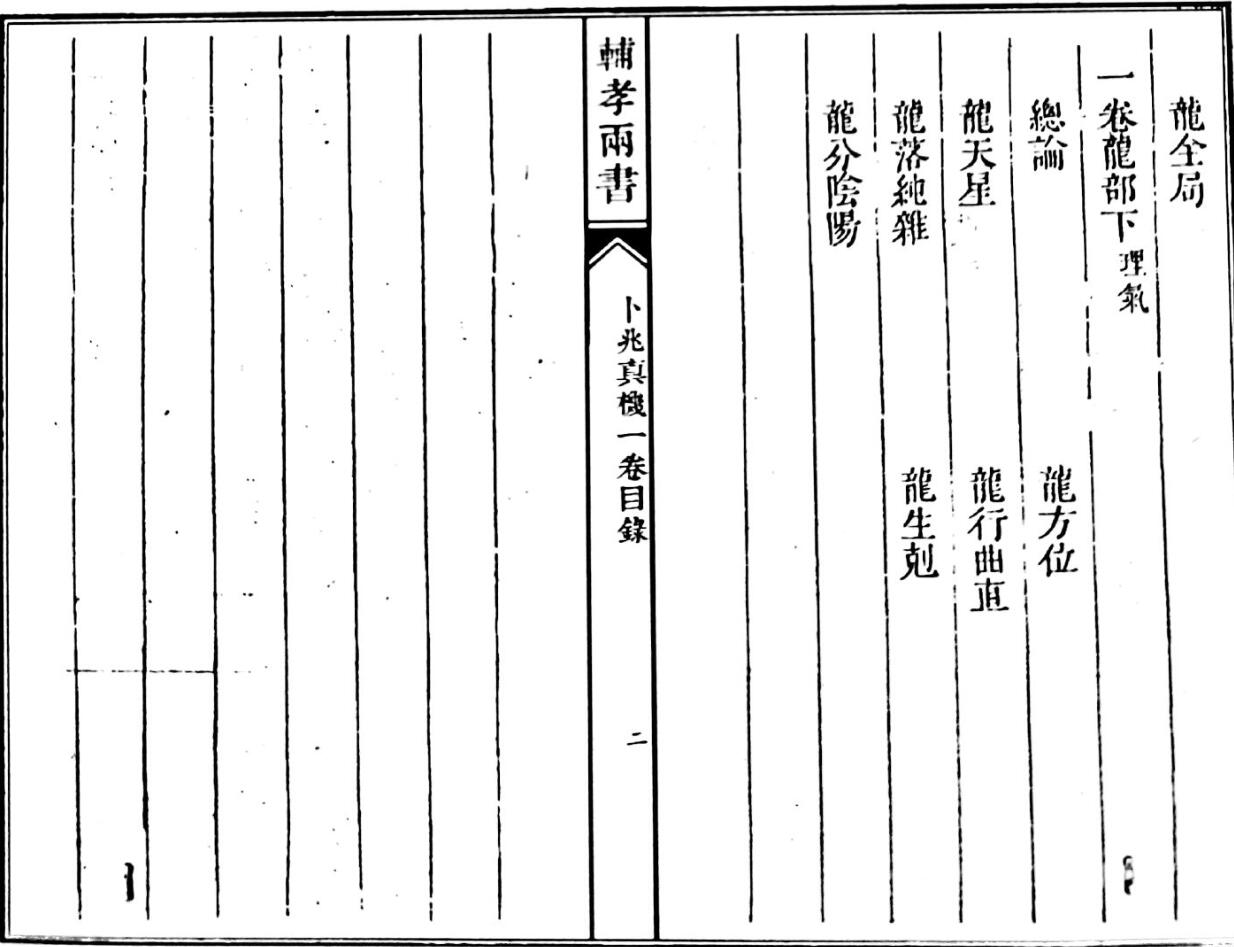 龍全局
一卷龍部下 理氣
總論
龍方位
龍天星
龍行曲直
龍落純雜
龍生剋
龍分陰陽
輔孝兩書
卜兆真機一卷目錄
二